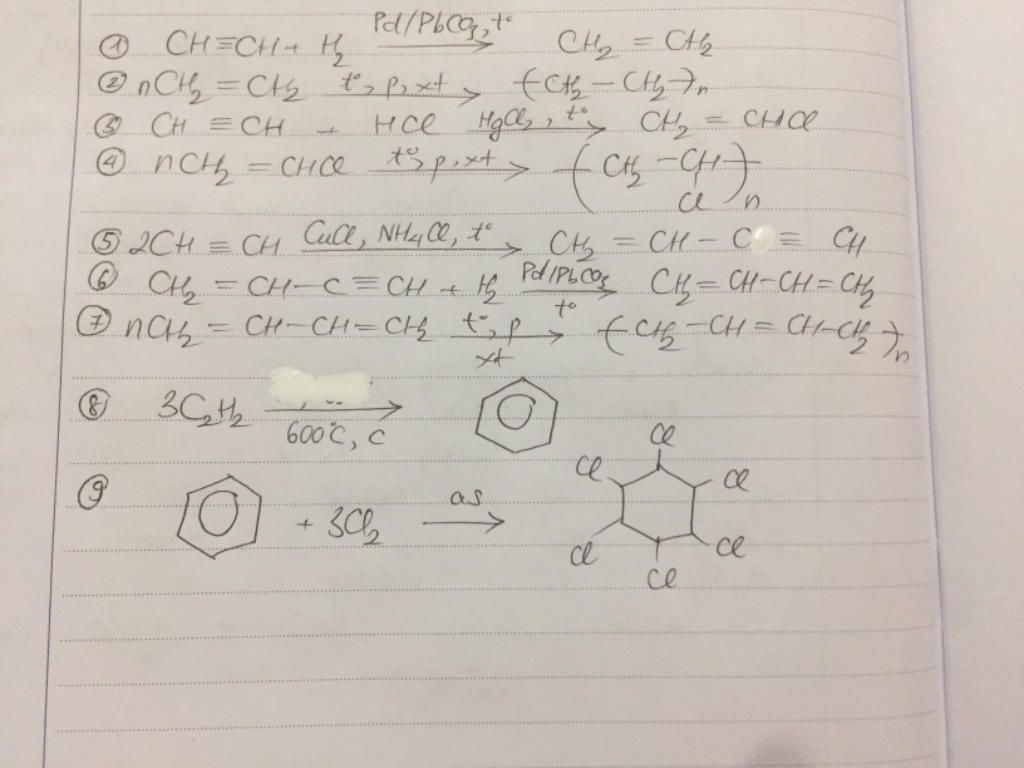 ① CH≡CH + H₂ —Pd/PbCO₃, t°→ CH₂ = CH₂
② nCH₂ = CH₂ —t°, p, xt→ (CH₂ – CH₂)n
③ CH ≡ CH + HCl —HgCl₂, t°→ CH₂ = CHCl
④ nCH₂ = CHCl —t°, p, xt→ (CH₂ – CH)n
Cl
⑤ 2CH ≡ CH —CuCl, NH₄Cl, t°→ CH₂ = CH – C ≡ CH
⑥ CH₂ = CH – C ≡ CH + H₂ —Pd/PbCO₃, t°→ CH₂ = CH – CH = CH₂
⑦ nCH₂ = CH – CH = CH₂ —t°, p, xt→ (CH₂ – CH = CH – CH₂)n
⑧ 3C₂H₂ —600°C, C→
⑨ + 3Cl₂ —as→
Cl
Cl Cl
Cl Cl
Cl